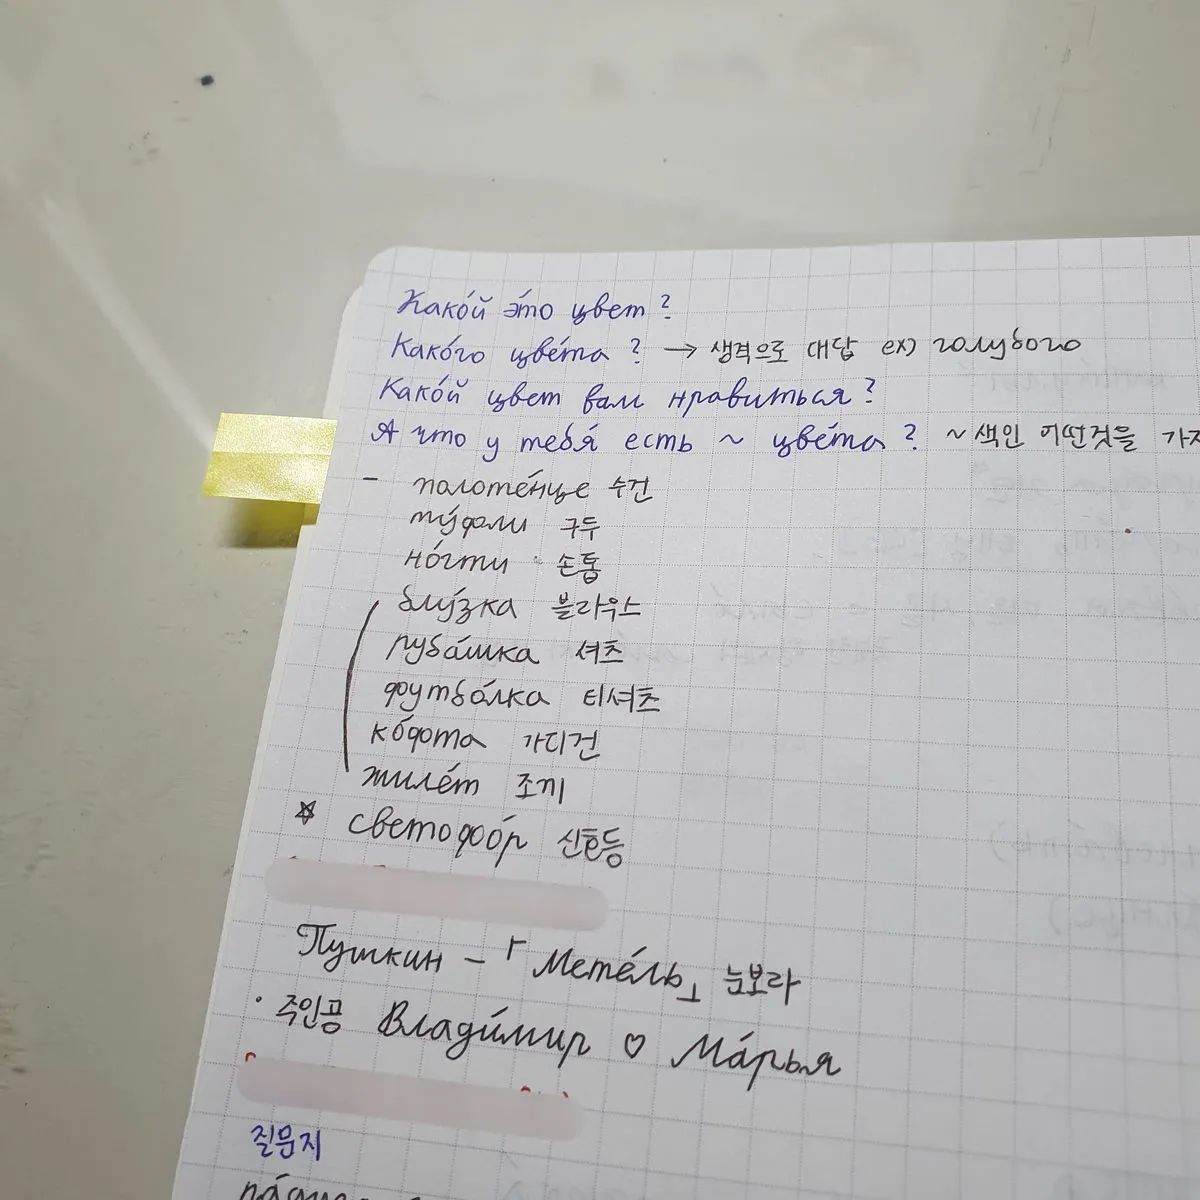 Како́й э́то цвет?
Како́го цве́та? → 생격으로 대답 ex) голубого
Како́й цвет вам нра́виться?
А что у тебя́ есть ~ цве́та? ~색인 어떤것을 가지
- полоте́нце 수건
ту́фли 구두
но́гти 손톱
блу́зка 블라우스
руба́шка 셔츠
футбо́лка 티셔츠
ко́фта 가디건
жиле́т 조끼
☆ светофо́р 신호등
Пушкин - 「Мете́ль」 눈보라
· 주인공 Влади́мир ♡ Ма́рья
질문지